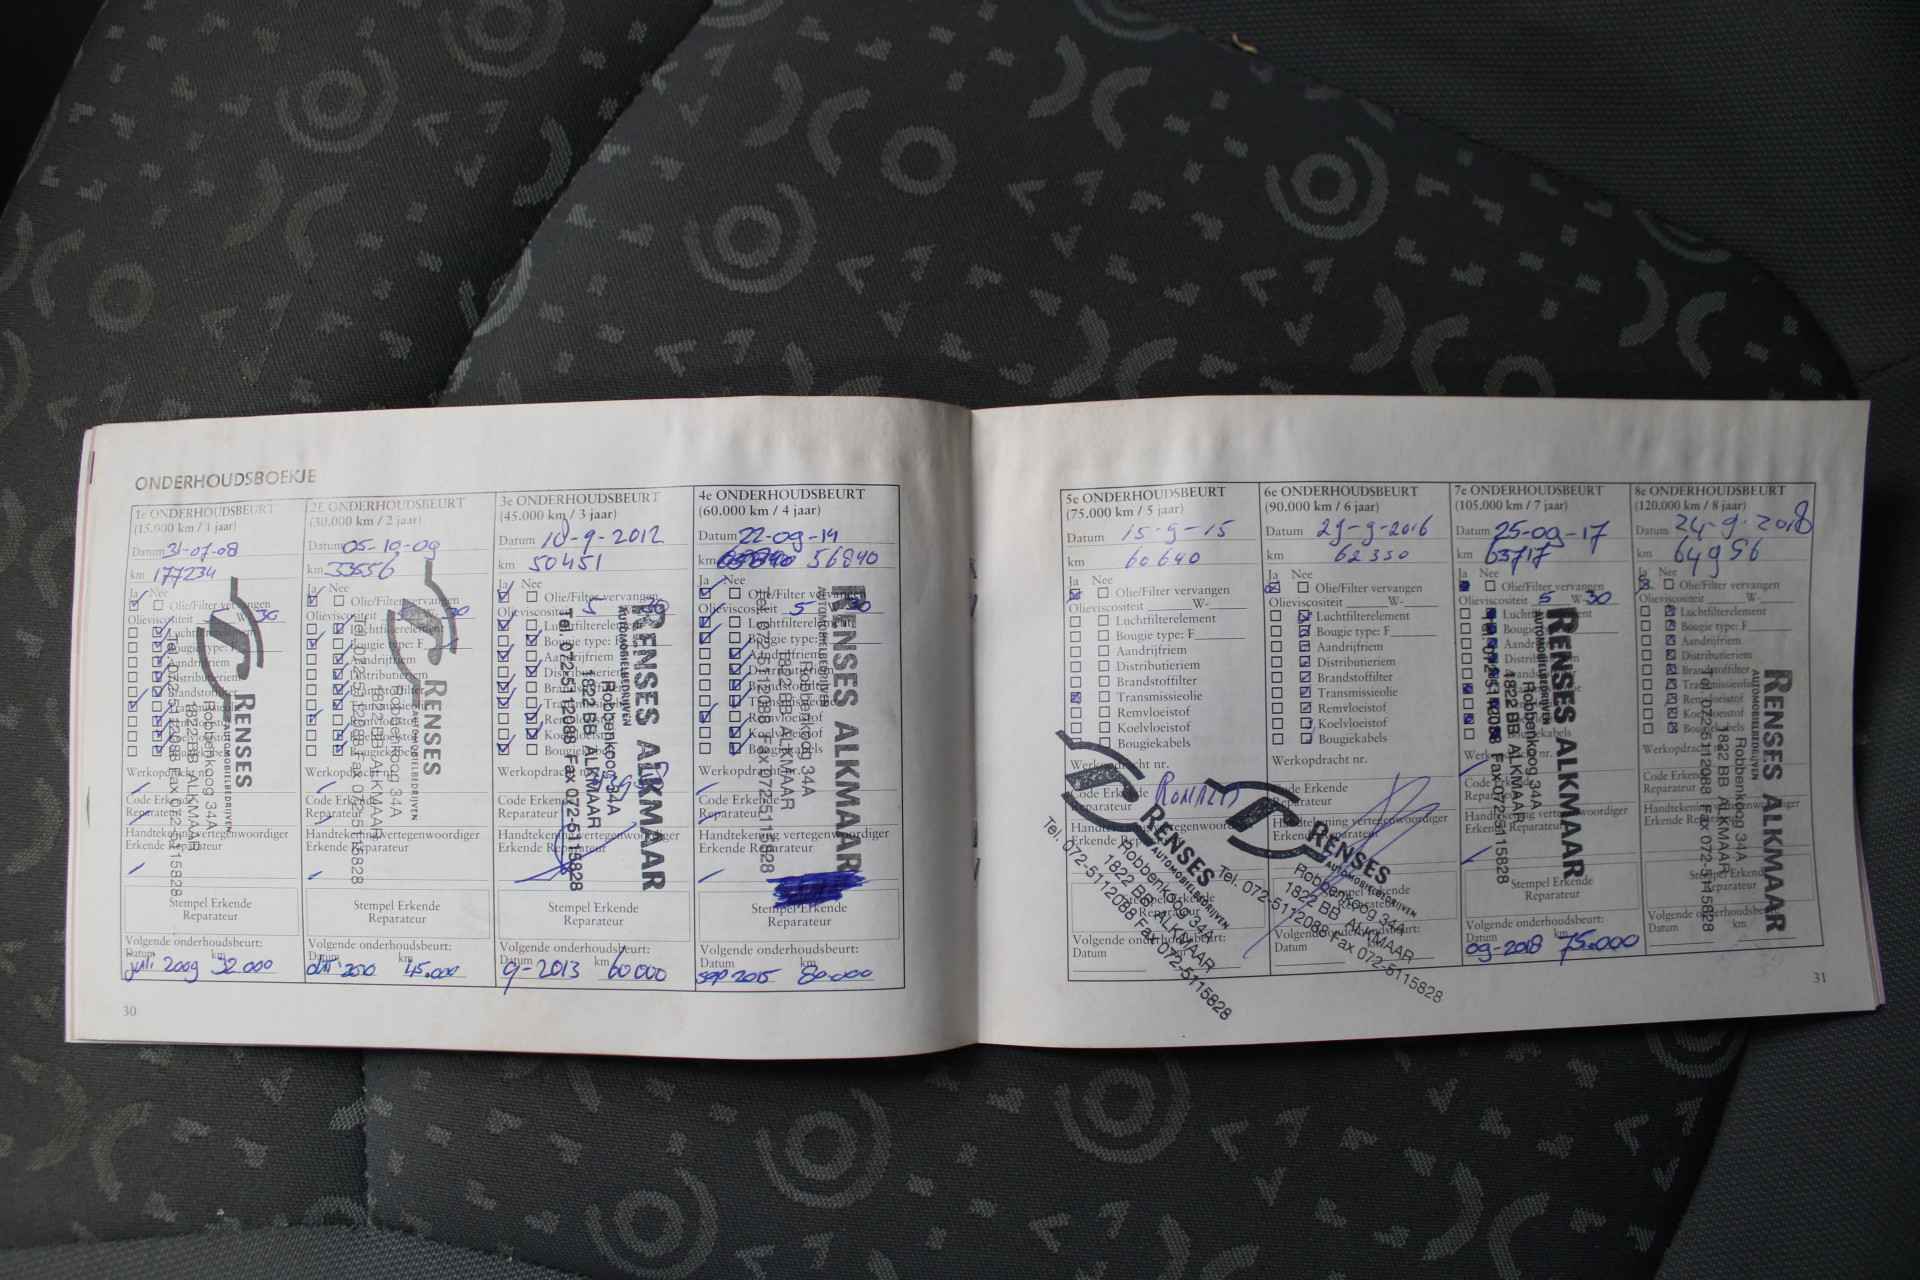 ONDERHOUDSBOEKJE
1e ONDERHOUDSBEURT
(15.000 km / 1 jaar)
Datum 31-07-08
km 177234
Ja Nee
Olie/Filter vervangen
Olieviscositeit 5 W- 30
Luchtfilterelement
Bougie type: F
Aandrijfriem
Distributieriem
Brandstoffilter
Transmissieolie
Remvloeistof
Koelvloeistof
Bougiekabels
Werkopdracht nr.
Code Erkende
Reparateur
Handtekening vertegenwoordiger
Erkende Reparateur
Stempel Erkende
Reparateur
Volgende onderhoudsbeurt:
Datum km
juli 2009 32.000
RENSES
AUTOMOBIELBEDRIJVEN
Robbenkoog 34A
1822 BB ALKMAAR
Tel. 072-5112088 Fax 072-5115828
2E ONDERHOUDSBEURT
(30.000 km / 2 jaar)
Datum 05-10-09
km 33556
Ja Nee
Olie/Filter vervangen
Olieviscositeit 30
Luchtfilterelement
Bougie type: F
Aandrijfriem
Distributieriem
Brandstoffilter
Transmissieolie
Remvloeistof
Koelvloeistof
Bougiekabels
Werkopdracht nr.
Code Erkende
Reparateur
Handtekening vertegenwoordiger
Erkende Reparateur
Stempel Erkende
Reparateur
Volgende onderhoudsbeurt:
Datum km
2010 45.000
RENSES
AUTOMOBIELBEDRIJVEN
Robbenkoog 34A
1822 BB ALKMAAR
Tel. 072-5112088 Fax 072-5115828
3e ONDERHOUDSBEURT
(45.000 km / 3 jaar)
Datum 10-9-2012
km 50451
Ja Nee
Olie/Filter vervangen
Olieviscositeit 5 30
Luchtfilterelement
Bougie type: F
Aandrijfriem
Distributieriem
Brandstoffilter
Transmissieolie
Remvloeistof
Koelvloeistof
Bougiekabels
Werkopdracht nr.
Code Erkende
Reparateur
Handtekening vertegenwoordiger
Erkende Reparateur
Stempel Erkende
Reparateur
Volgende onderhoudsbeurt:
Datum km
9-2013 60000
RENSES ALKMAAR
AUTOMOBIELBEDRIJVEN
Robbenkoog 34A
1822 BB ALKMAAR
Tel. 072-5112088 Fax 072-5115828
4e ONDERHOUDSBEURT
(60.000 km / 4 jaar)
Datum 22-09-14
km 56840
Ja Nee
Olie/Filter vervangen
Olieviscositeit 5 30
Luchtfilterelement
Bougie type: F
Aandrijfriem
Distributieriem
Brandstoffilter
Transmissieolie
Remvloeistof
Koelvloeistof
Bougiekabels
Werkopdracht nr.
Code Erkende
Reparateur
Handtekening vertegenwoordiger
Erkende Reparateur
Stempel Erkende
Reparateur
Volgende onderhoudsbeurt:
Datum km
sep 2015 80.000
RENSES ALKMAAR
AUTOMOBIELBEDRIJVEN
Robbenkoog 34A
1822 BB ALKMAAR
Tel. 072-5112088 Fax 072-5115828
30
5e ONDERHOUDSBEURT
(75.000 km / 5 jaar)
Datum 15-9-15
km 60640
Ja Nee
Olie/Filter vervangen
Olieviscositeit W-
Luchtfilterelement
Bougie type: F
Aandrijfriem
Distributieriem
Brandstoffilter
Transmissieolie
Remvloeistof
Koelvloeistof
Bougiekabels
Werkopdracht nr.
Code Erkende
Reparateur
Handtekening vertegenwoordiger
Erkende Reparateur
Volgende onderhoudsbeurt:
Datum
RENSES
AUTOMOBIELBEDRIJVEN
Robbenkoog 34A
1822 BB ALKMAAR
Tel. 072-5112088 Fax 072-5115828
6e ONDERHOUDSBEURT
(90.000 km / 6 jaar)
Datum 29-9-2016
km 62350
Ja Nee
Olie/Filter vervangen
Olieviscositeit W-
Luchtfilterelement
Bougie type: F
Aandrijfriem
Distributieriem
Brandstoffilter
Transmissieolie
Remvloeistof
Koelvloeistof
Bougiekabels
Werkopdracht nr.
Code Erkende
Reparateur
Handtekening vertegenwoordiger
Erkende Reparateur
Volgende onderhoudsbeurt:
Datum
RENSES
AUTOMOBIELBEDRIJVEN
Robbenkoog 34A
1822 BB ALKMAAR
Tel. 072-5112088 Fax 072-5115828
7e ONDERHOUDSBEURT
(105.000 km / 7 jaar)
Datum 25-09-17
km 63717
Ja Nee
Olie/Filter vervangen
Olieviscositeit 5 W- 30
Luchtfilterelement
Bougie type: F
Aandrijfriem
Distributieriem
Brandstoffilter
Transmissieolie
Remvloeistof
Koelvloeistof
Bougiekabels
Werkopdracht nr.
Code Erkende
Reparateur
Handtekening vertegenwoordiger
Erkende Reparateur
Stempel Erkende
Reparateur
Volgende onderhoudsbeurt:
Datum km
09-2018 75.000
RENSES ALKMAAR
AUTOMOBIELBEDRIJVEN
Robbenkoog 34A
1822 BB ALKMAAR
Tel. 072-5112088 Fax 072-5115828
8e ONDERHOUDSBEURT
(120.000 km / 8 jaar)
Datum 24-9-2018
km 64956
Ja Nee
Olie/Filter vervangen
Olieviscositeit W-
Luchtfilterelement
Bougie type: F
Aandrijfriem
Distributieriem
Brandstoffilter
Transmissieolie
Remvloeistof
Koelvloeistof
Bougiekabels
Werkopdracht nr.
Code Erkende
Reparateur
Handtekening vertegenwoordiger
Erkende Reparateur
Stempel Erkende
Reparateur
Volgende onderhoudsbeurt:
Datum km
RENSES ALKMAAR
AUTOMOBIELBEDRIJVEN
Robbenkoog 34A
1822 BB ALKMAAR
Tel. 072-5112088 Fax 072-5115828
31